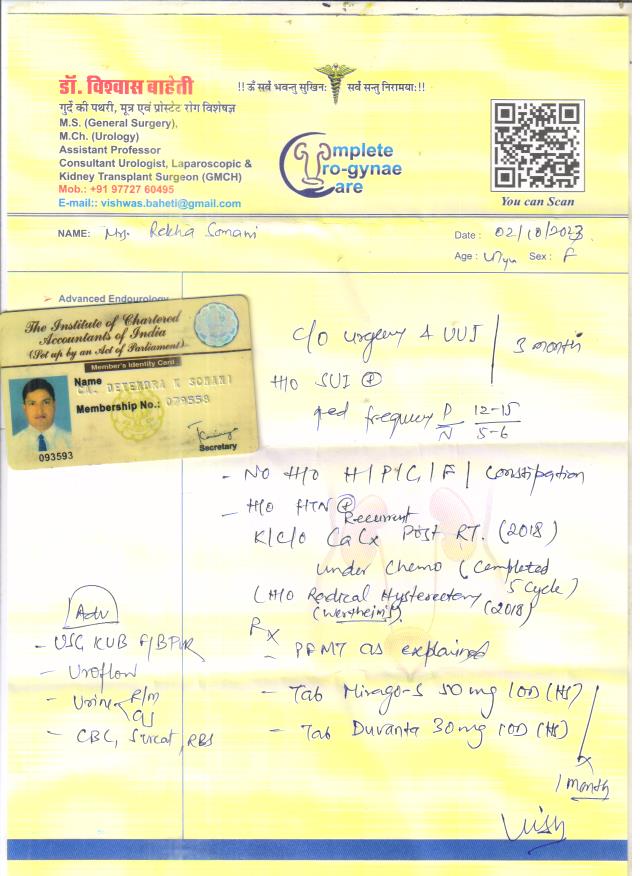 डॉ. विश्वास बाहेती
गुर्दे की पथरी, मूत्र एवं प्रोस्टेट रोग विशेषज्ञ
M.S. (General Surgery),
M.Ch. (Urology)
Assistant Professor
Consultant Urologist, Laparoscopic &
Kidney Transplant Surgeon (GMCH)
Mob.: +91 97727 60495
E-mail:: vishwas.baheti@gmail.com
!! ॐ सर्वे भवन्तु सुखिनः सर्वे सन्तु निरामयाः !!
Complete
Uro-gynae
Care
You can Scan
NAME: Mrs. Rekha Somani
Date : 02/10/2023
Age : Sex : F
Advanced Endourology
The Institute of Chartered
Accountants of India
(Set up by an Act of Parliament)
Member's Identity Card
Name
CA. DEVENDRA K SOMANI
Membership No.: 079558
Secretary
093593
C/O urgency & UUI | 3 month
H/O SUI ⊕
frequency D/N 12-15/5-6
- NO H/O H/P/C/F/ Constipation
- H/O HTN ⊕
Recurrent
K/C/O Ca Cx Post RT. (2018)
under Chemo (Completed
5 cycle)
(H/O Radical Hysterectomy (2018)
(Wertheim's)
Rx
- PFMT as explained
- Tab Mirago-S 50 mg 1OD (HS)
- Tab Duvanta 30 mg 1OD (HS)
x
1 month
Adv
- USG KUB
- Uroflow
- Urine R/m
C/S
- CBC, Srcreat, RBS